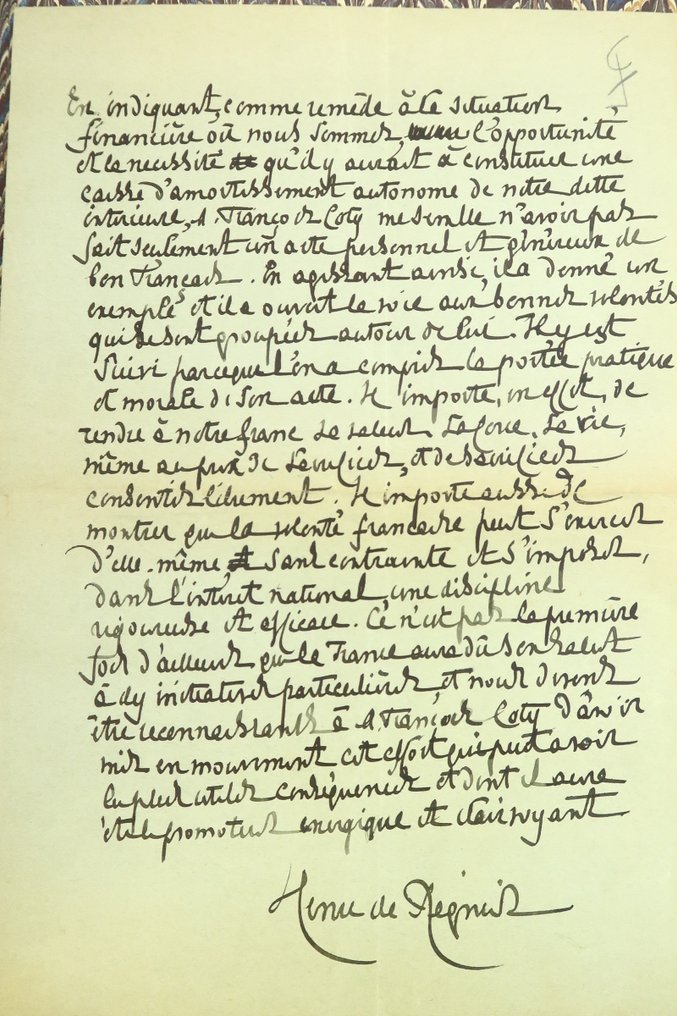 En indiquant, comme remède à la situation
financière où nous sommes, l'opportunité
et la necessité qu'il y aurait à constituer une
caisse d'amortissement autonome de notre dette
intérieure, M. François Coty me semble n'avoir pas
fait seulement un acte personnel et généreux de
bon Français. En agissant ainsi, il a donné un
exemple et il a ouvert la voie aux bonnes volontés
qui se sont groupées autour de lui. Il y est
suivi parceque l'on a compris la portée pratique
et morale de son acte. Il importe, en effet, de
rendre à notre franc sa valeur, sa force, sa vie,
même au prix de sacrifices, et de sacrifices
consentis librement. Il importe aussi de
montrer que la volonté française peut s'exercer
d'elle-même sans contrainte et s'imposer,
dans l'intérêt national, une discipline
rigoureuse et efficace. Ce n'est pas la première
fois d'ailleurs que la France aura dû son salut
à des initiatives particulières et nous devons
être reconnaissants à M. François Coty d'avoir
mis en mouvement cet effort qui peut avoir
les plus utiles conséquences et dont il aura
été le promoteur énergique et clairvoyant.
Henri de Régnier